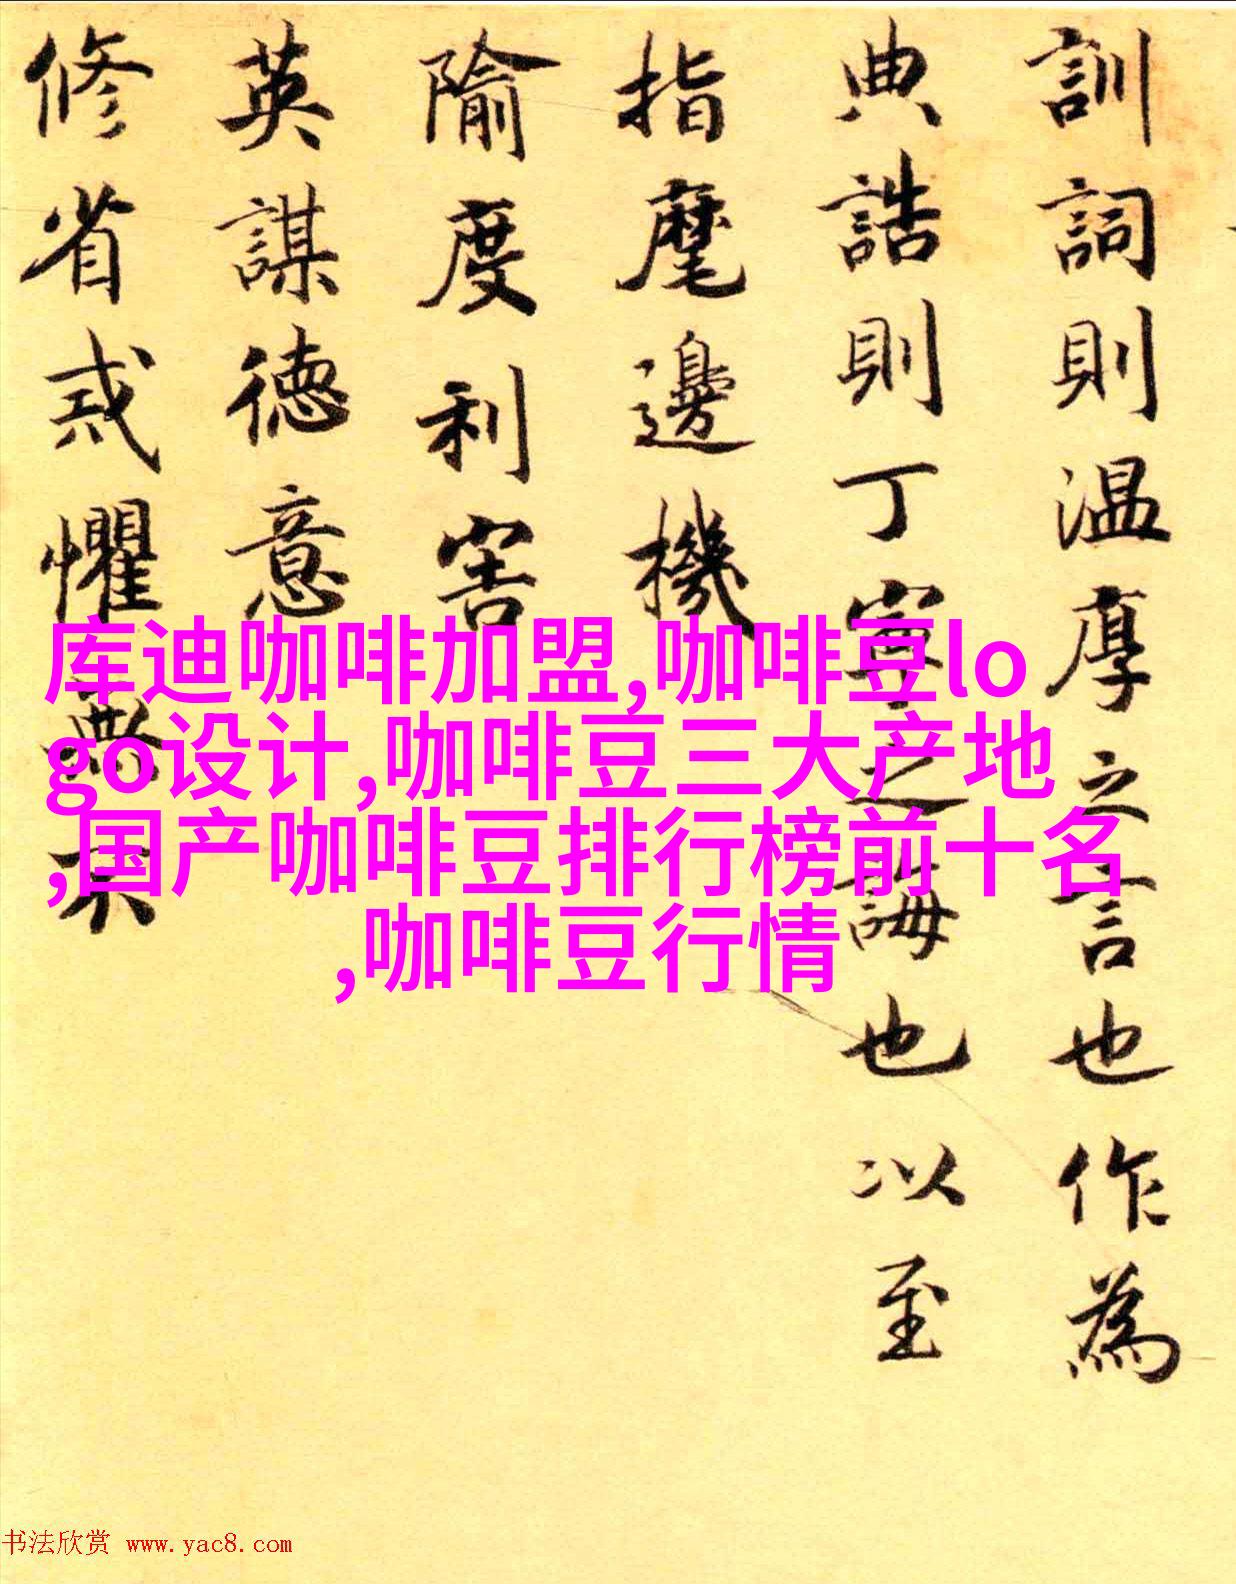 訓詞則温厚之言也作為
典誥則丁寧之誨也以至
指麾邊機
隃度利害
英謀徳意
修省戒懼無不
库迪咖啡加盟,咖啡豆lo
go设计,咖啡豆三大产地
,国产咖啡豆排行榜前十名
,咖啡豆行情
书法欣赏 www.yac8.com